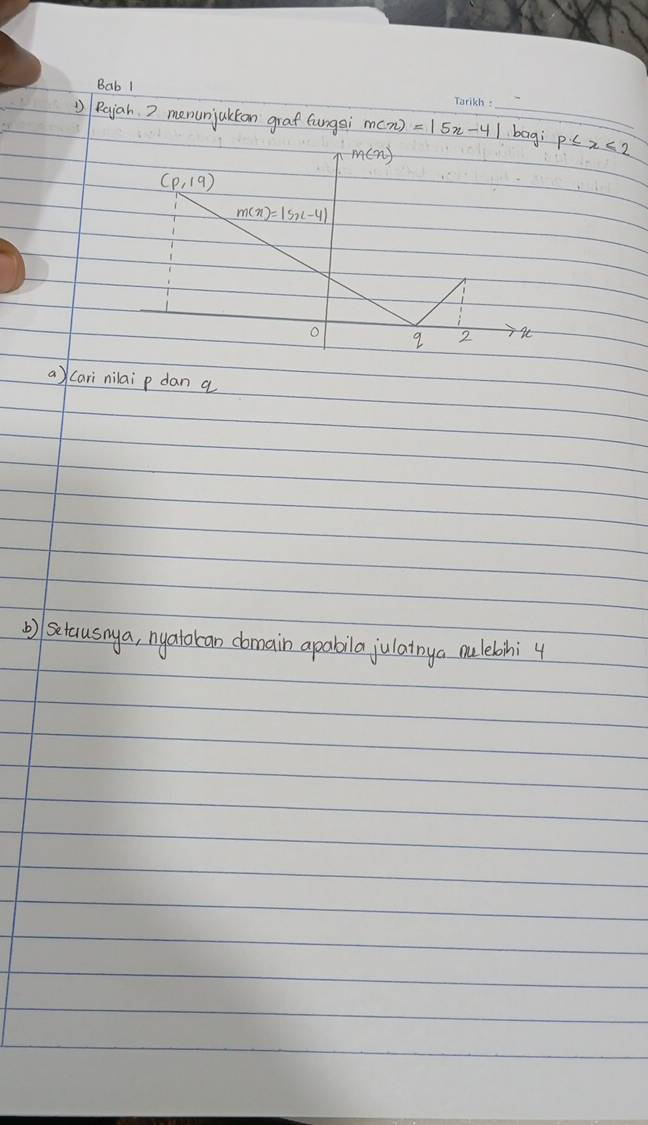 Bab 1
Tarikh :
1) Rajah 2 menunjukkan graf fungsi m(x) = |5x-4| bagi p ≤ x ≤ 2
m(x)
(p,19)
m(x)=|5x-4|
0 q 2 x
a) Cari nilai p dan q
b) Seterusnya, nyatakan domain apabila julatnya melebihi 4